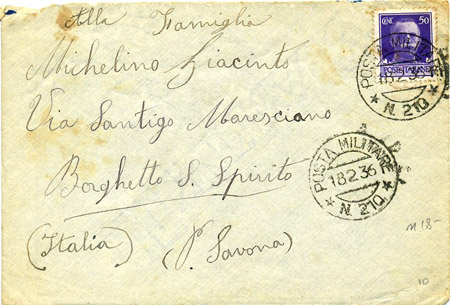 Alla Famiglia
Michelino Giacinto
Via Santigo Maresciano
Borghetto S. Spirito
(Italia) (P. Savona)
CENT. 50
POSTE ITALIANE
POSTA MILITARE
18.2.36
★ N. 210 ★
POSTA MILITARE
18.2.36
★ N. 210 ★
M 18-
10